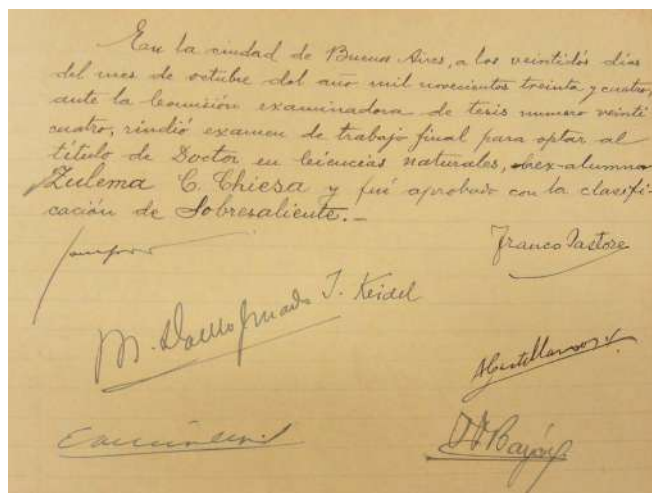 En la ciudad de Buenos Aires, a los veintidós dias
del mes de octubre del año mil novecientos treinta y cuatro,
ante la Comisión examinadora de tesis numero veinti
cuatro, rindió examen de trabajo final para optar al
título de Doctor en Ciencias naturales, ex-alumna
Zulema C. Chiesa y fué aprobado con la clasifi-
cación de Sobresaliente.—
Franco Pastore
J. Keidel
M. Doello Jurado
A Castellanos